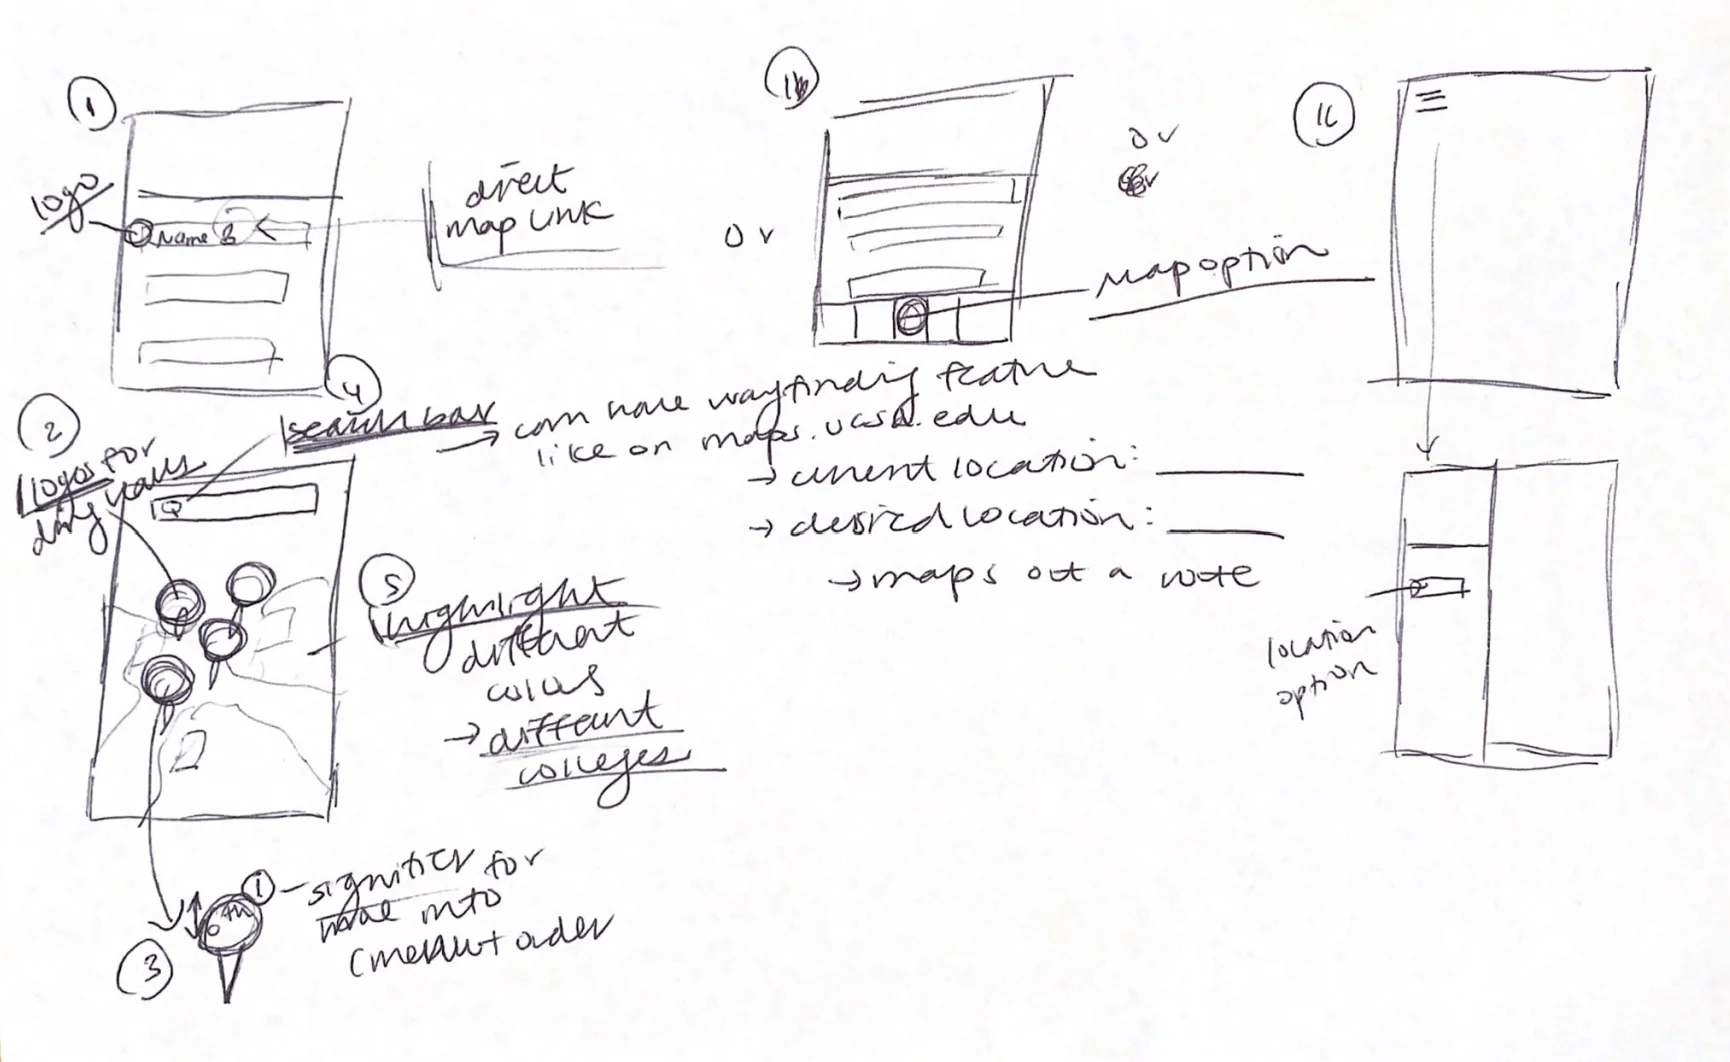 1
logo
Name
direct
map link
or
1b
or
or
map option
1c
4
search bar → can have wayfinding feature
like on maps.ucsd.edu
→ current location: ____
→ desired location: ____
→ maps out a route
2
logos for
dining halls
5
highlight
different
colors
→ different
colleges
location
option
3
i
signifier for
more info
(menu + order